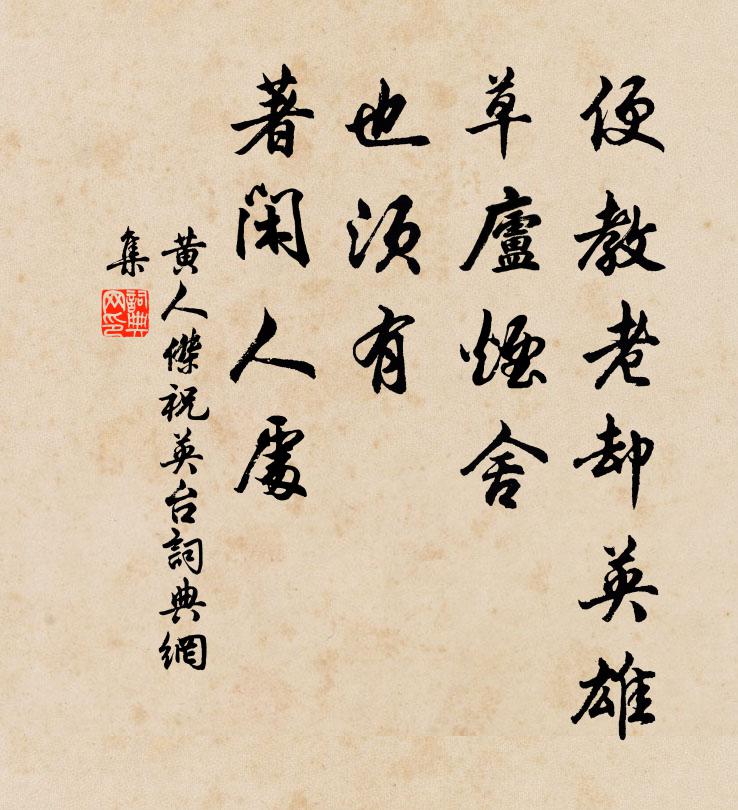 便教老却英雄
草廬煙舍
也須有
著閑人處
黃人傑祝英台詞典網
集
詞典
网印